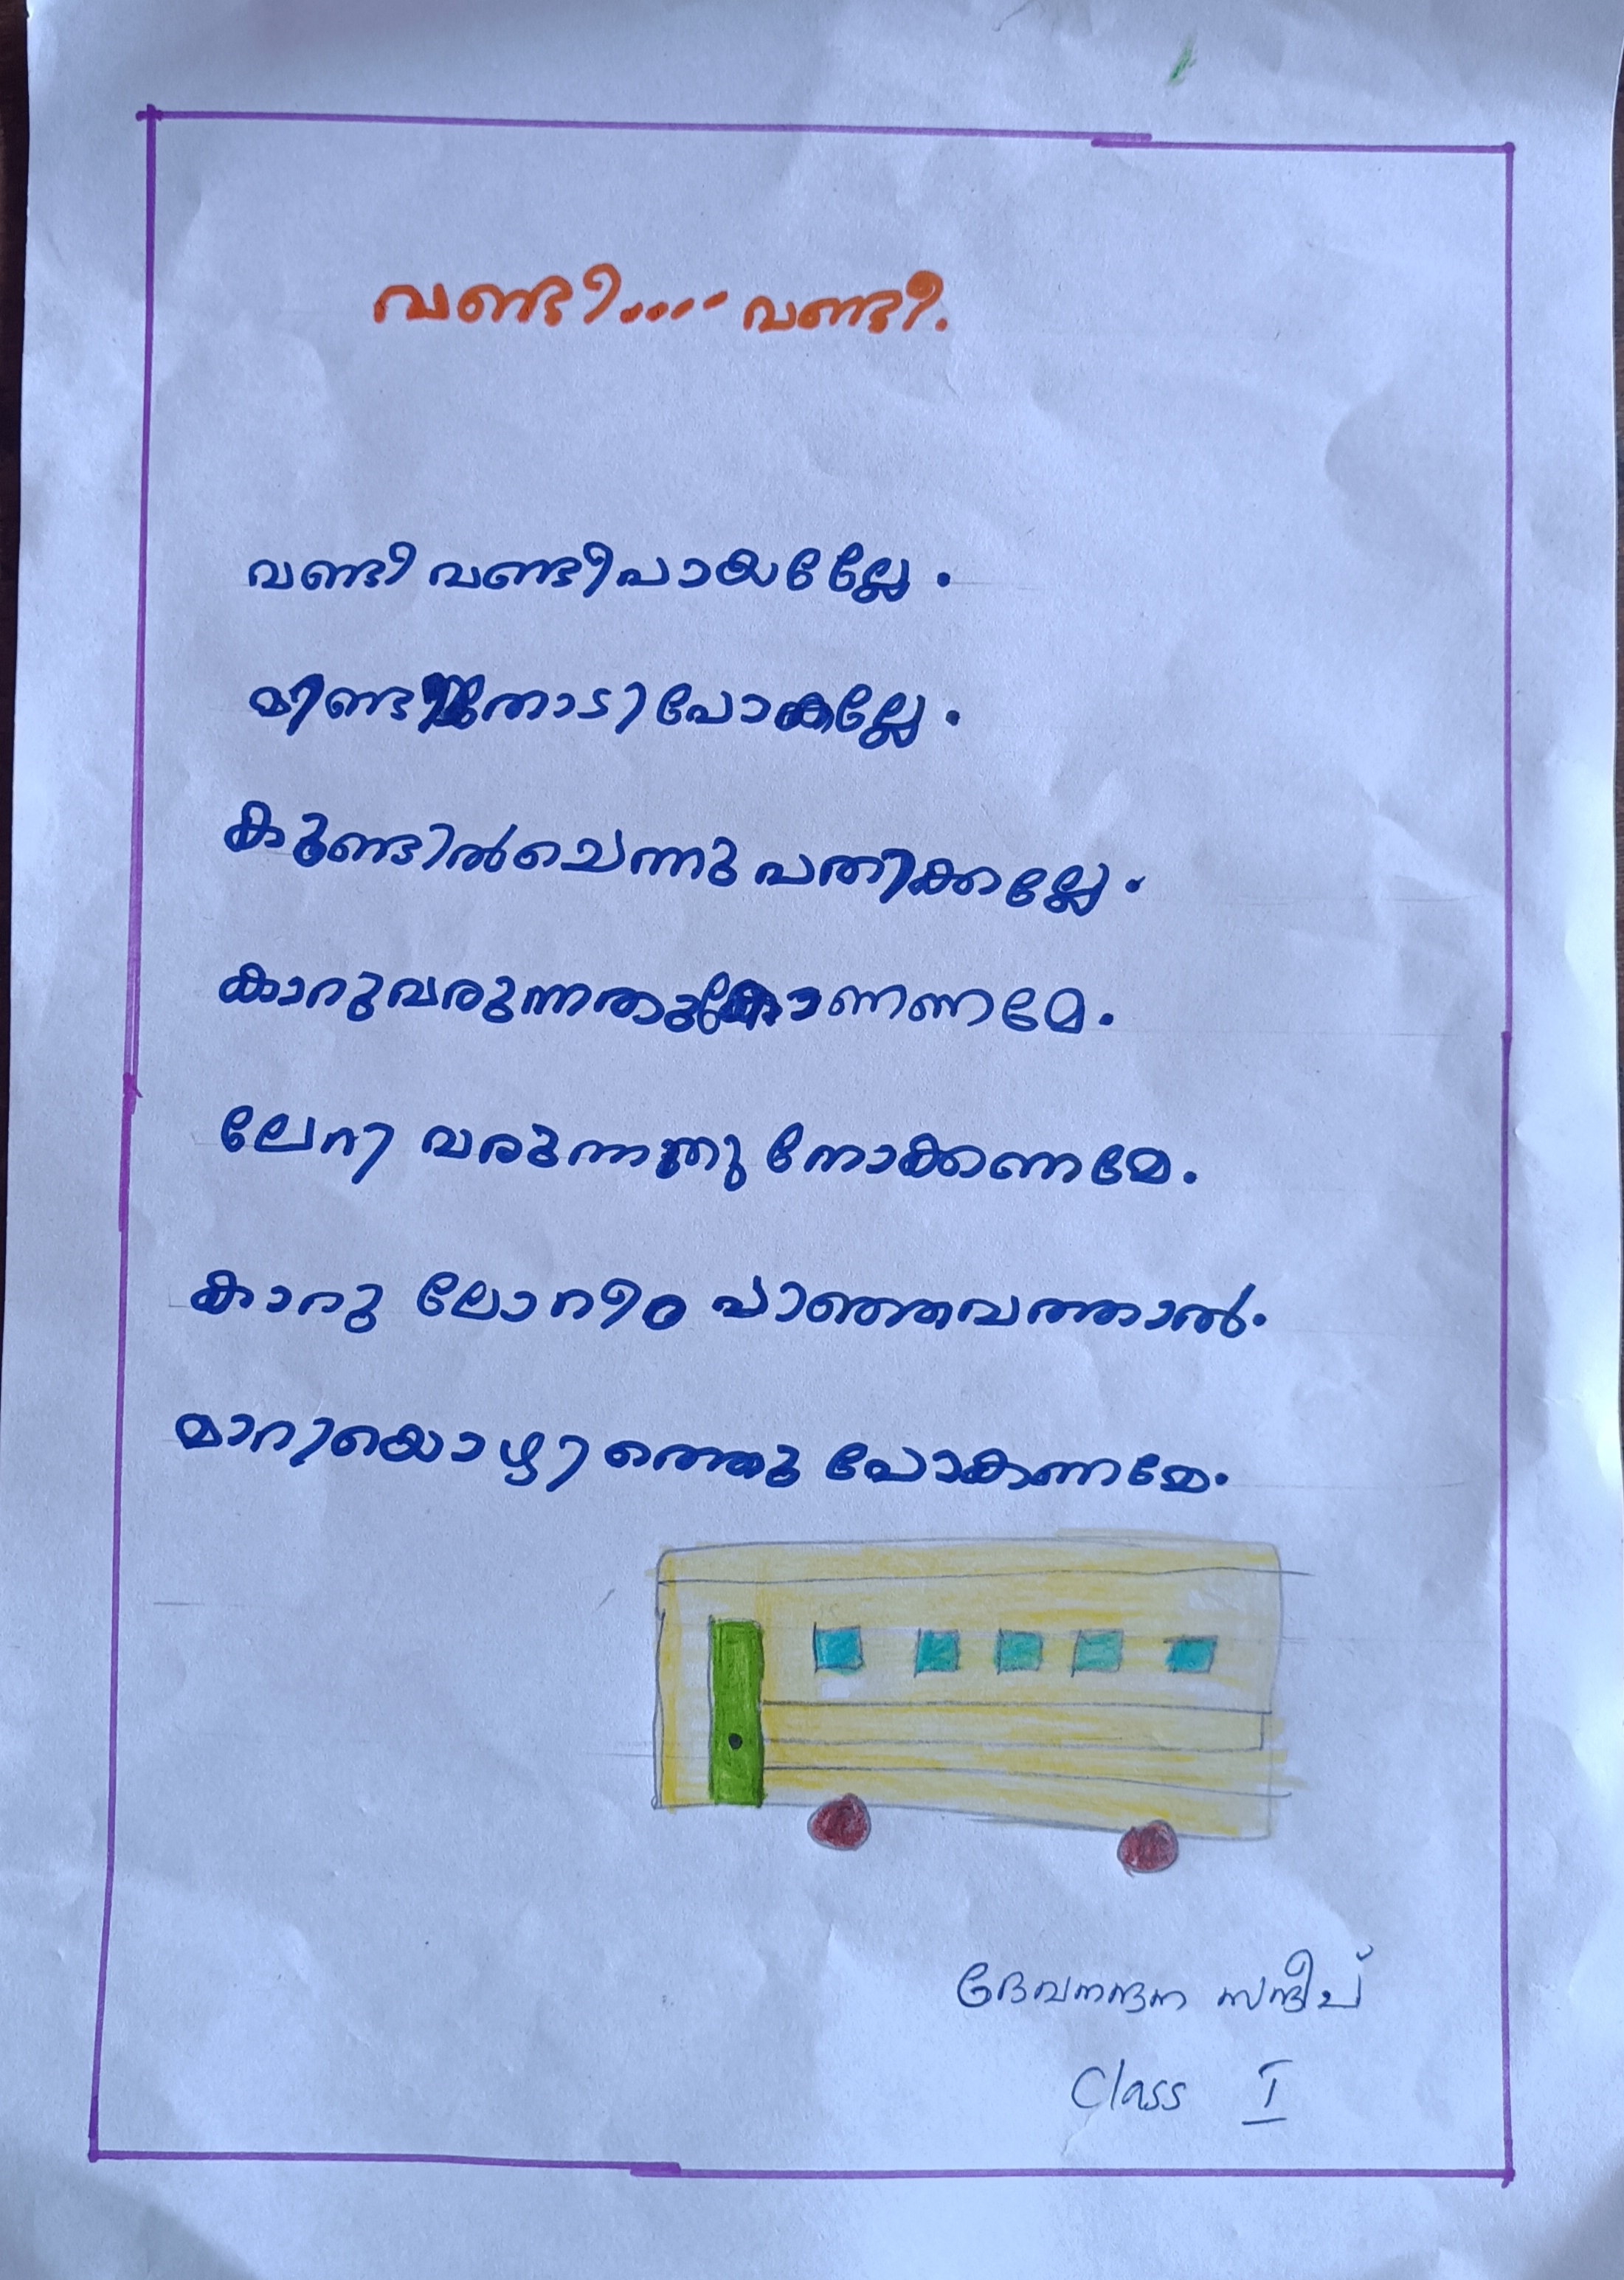 വണ്ടി.... വണ്ടീ.
വണ്ടി വണ്ടീ പായല്ലേ.
മിണ്ടാതോടി പോകല്ലേ.
കുണ്ടിൽ ചെന്നു പതിക്കല്ലേ.
കാറു വരുന്നതു കാണണമേ.
ലേറി വരുന്നതു നോക്കണമേ.
കാറു ലോറീം പാഞ്ഞവത്താൽ.
മാറിയൊഴിഞ്ഞു പോകണമേ.
ദേവനന്ദന സന്ദീപ്
Class I